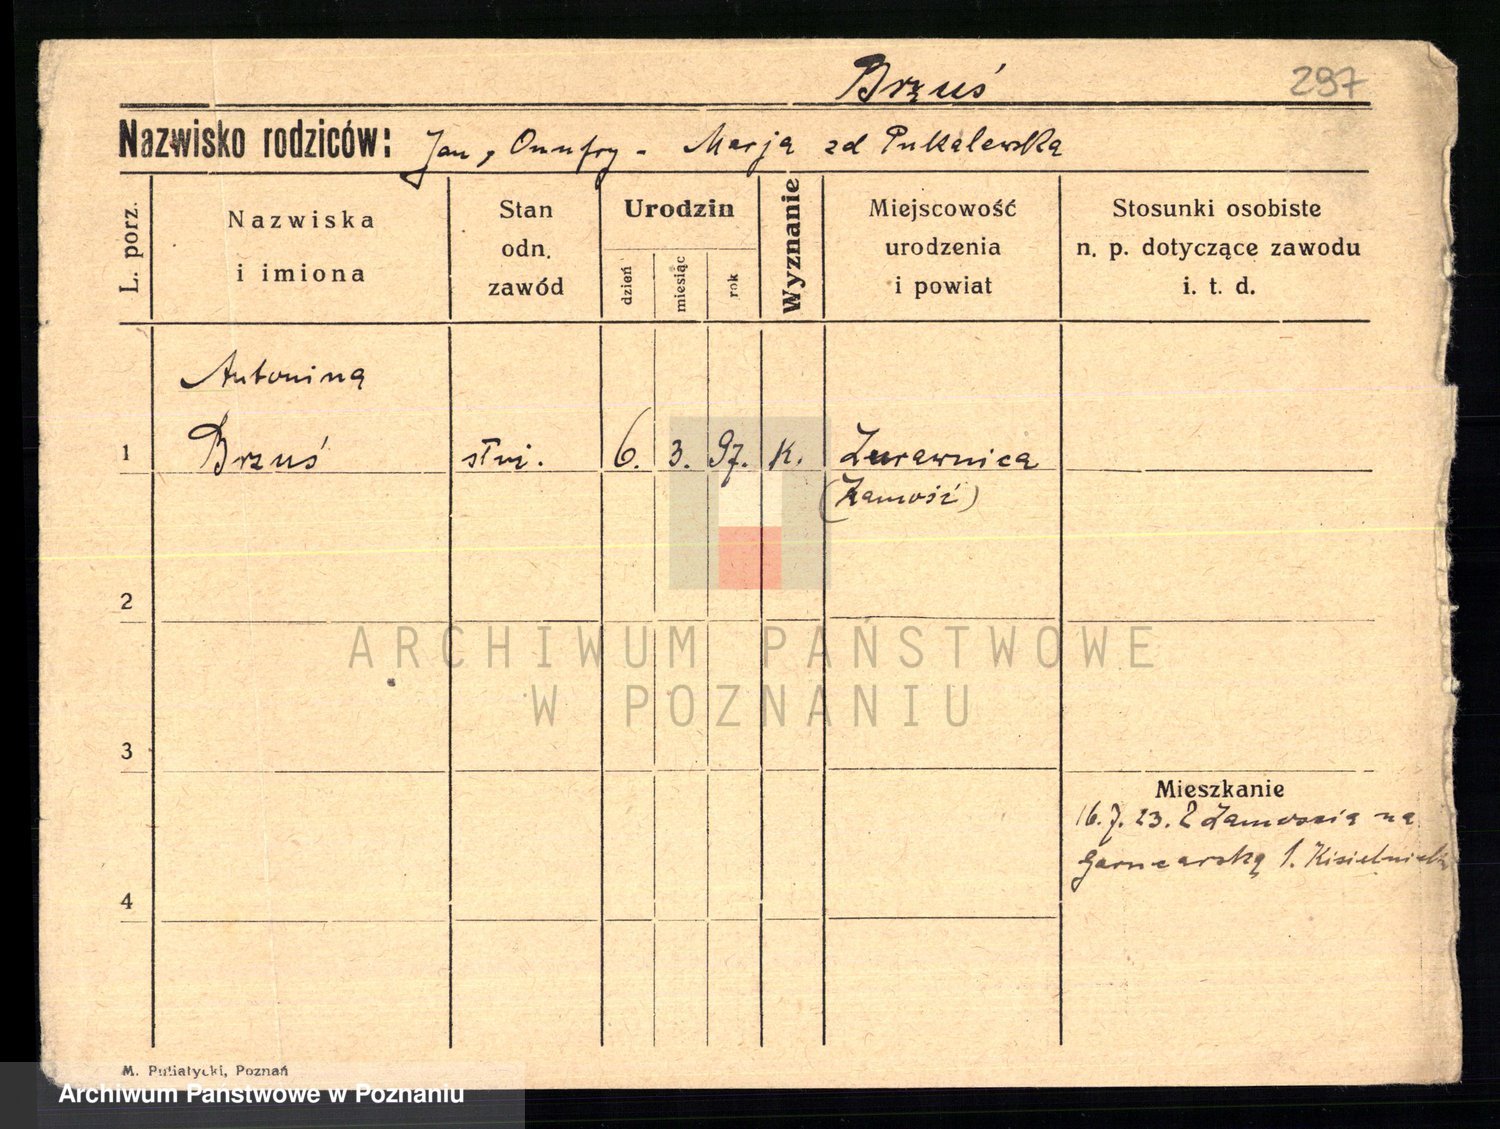 Brzuś 297
Nazwisko rodziców: Jan, Onufry - Marja zd Pukalewska
L. porz.
Nazwiska
i imiona
Stan
odn.
zawód
Urodzin
dzień
miesiąc
rok
Wyznanie
Miejscowość
urodzenia
i powiat
Stosunki osobiste
n. p. dotyczące zawodu
i. t. d.
Antonina
1 Brzuś służ. 6. 3. 97. k. Żurawnica
(Zamość)
2
ARCHIWUM PAŃSTWOWE
W POZNANIU
3
Mieszkanie
16.7.23. Z Zamościa na
Garncarską 1.
4
M. Putiatycki, Poznań
Archiwum Państwowe w Poznaniu